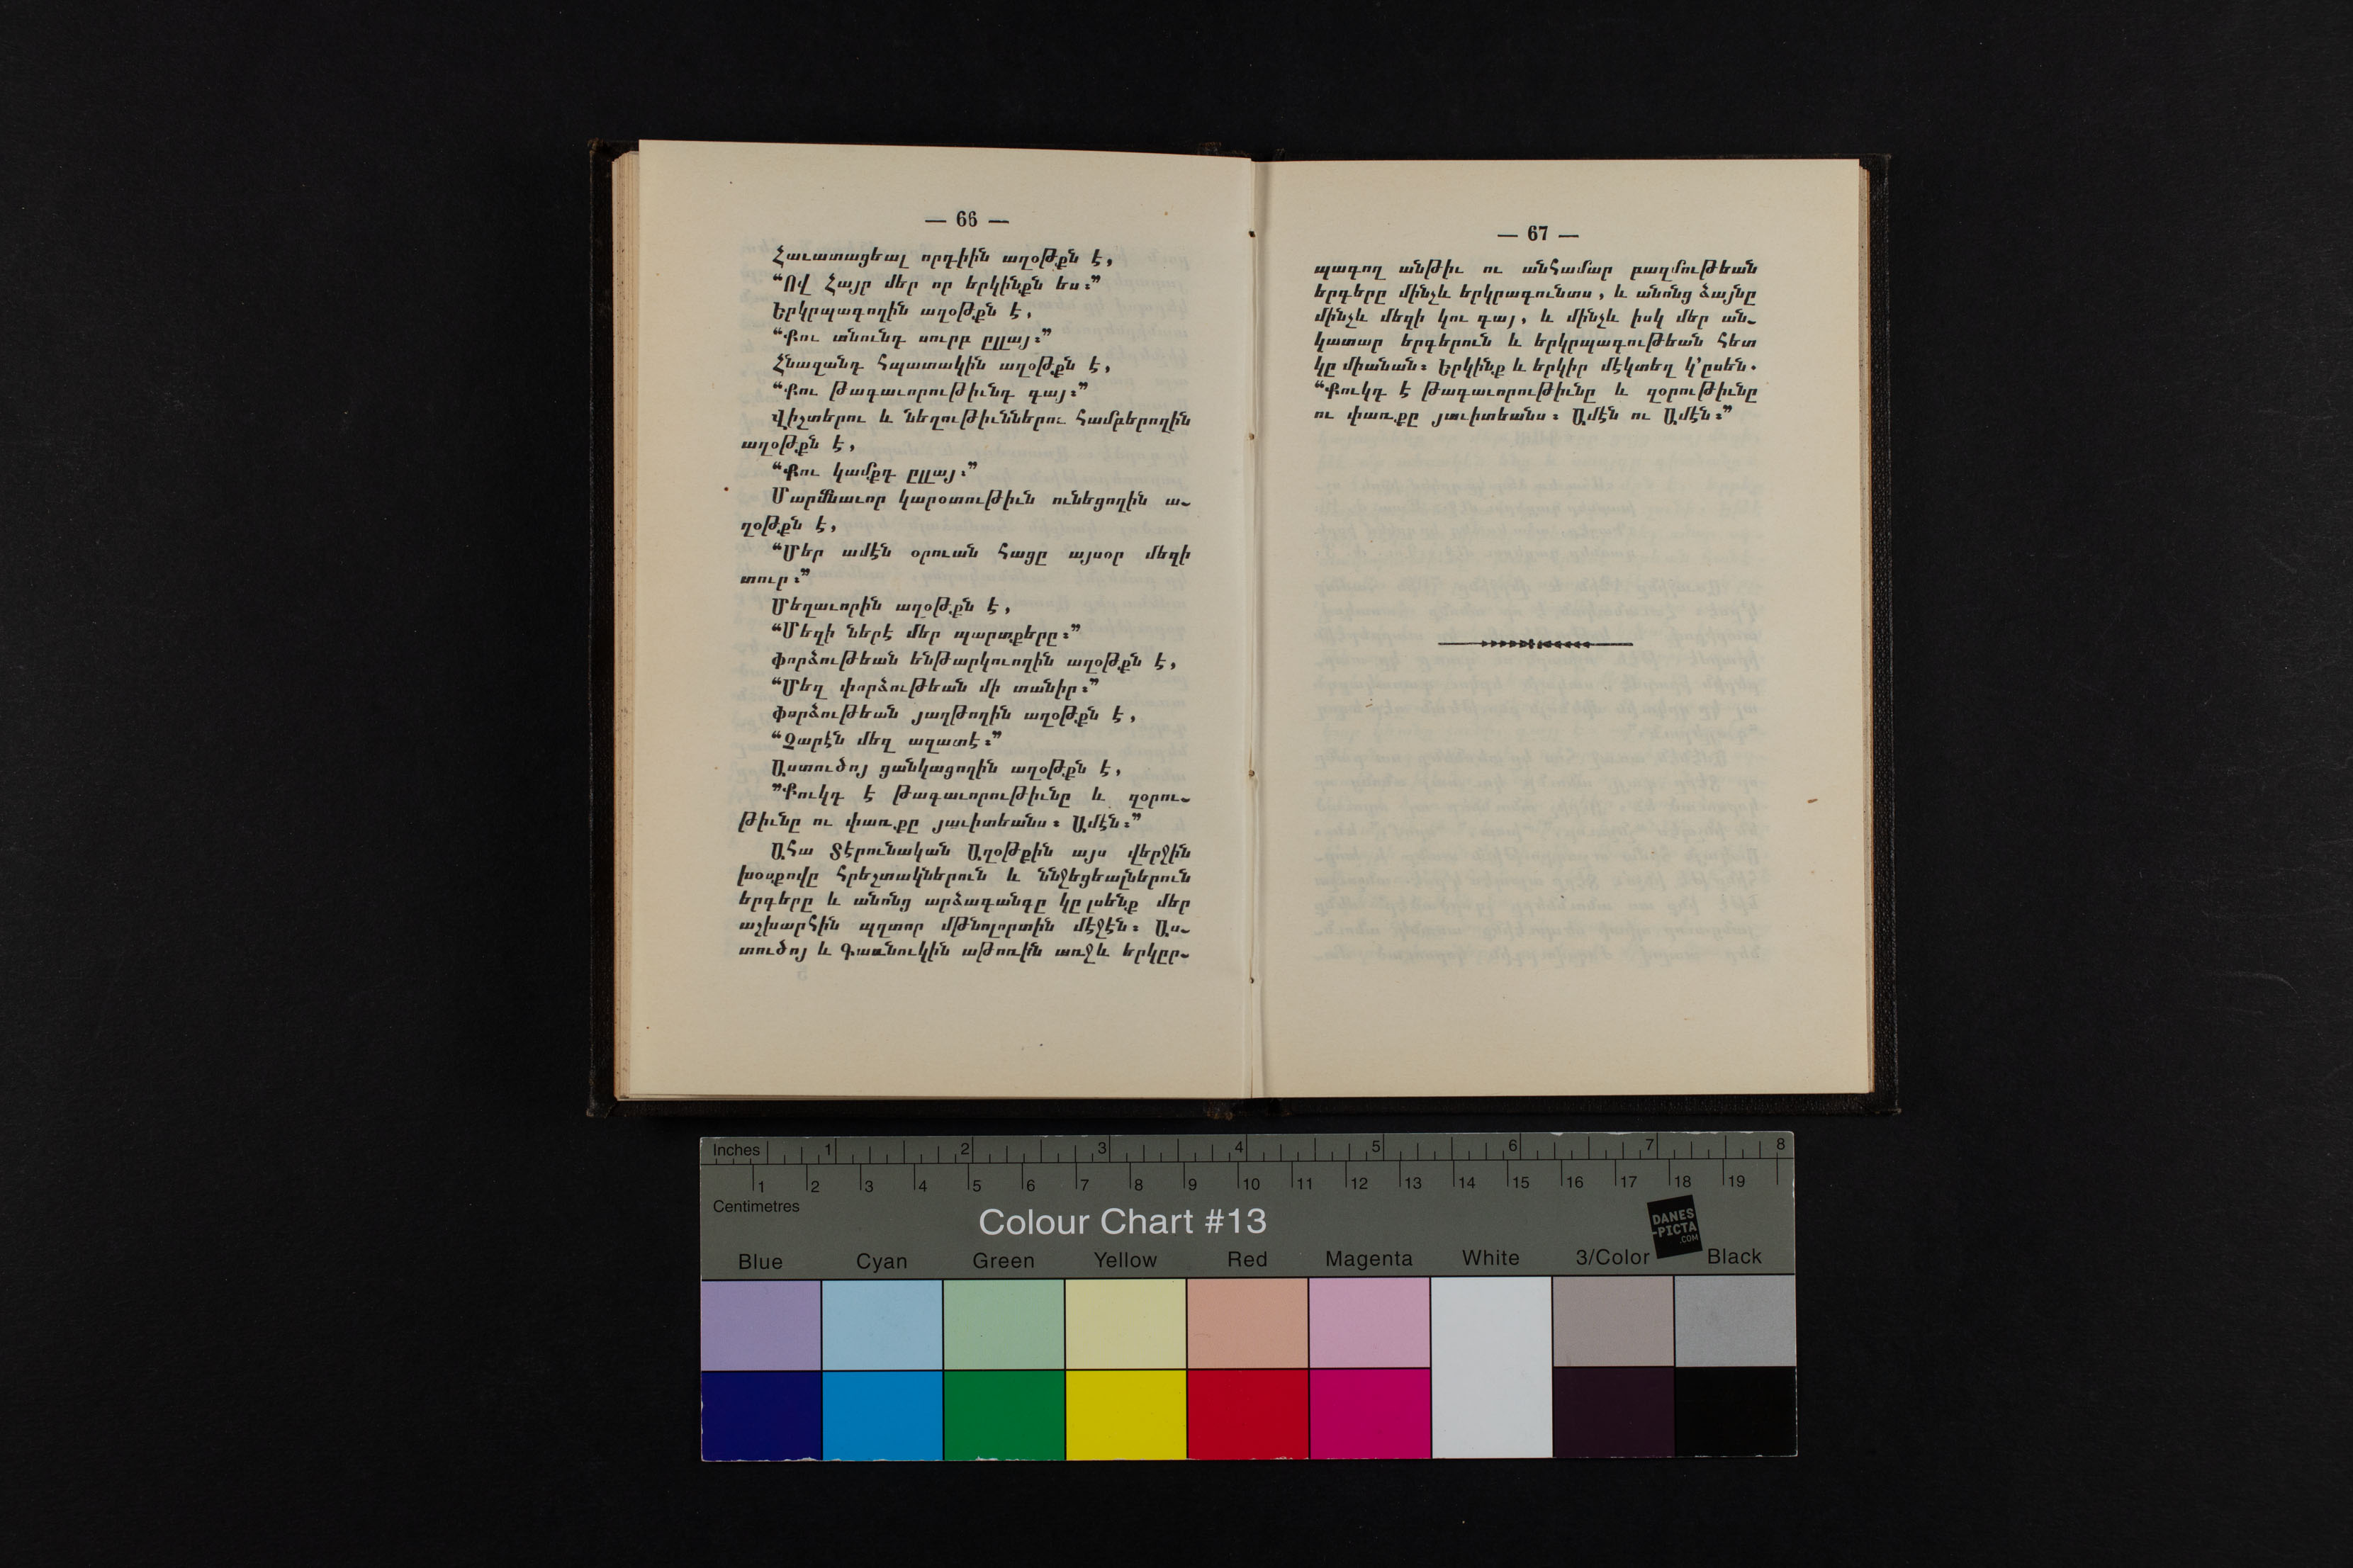 — 66 —
Հաւատացեալ որդիին աղօթքն է,
“Ով Հայր մեր որ երկինքն ես։”
Երկրպագողին աղօթքն է,
“Քու անունդ սուրբ ըլլայ։”
Հնազանդ հպատակին աղօթքն է,
“Քու թագաւորութիւնդ գայ։”
Վիշտերու և նեղութիւններու համբերողին
աղօթքն է,
“Քու կամքդ ըլլայ։”
Մարմնաւոր կարօտութիւն ունեցողին ա-
ղօթքն է,
“Մեր ամէն օրուան հացը այսօր մեզի
տուր։”
Մեղաւորին աղօթքն է,
“Մեզի ներէ մեր պարտքերը։”
Փորձութեան ենթարկուողին աղօթքն է,
“Մեզ փորձութեան մի տանիր։”
Փորձութեան յաղթողին աղօթքն է,
“Չարէն մեզ ազատէ։”
Աստուծոյ ցանկացողին աղօթքն է,
”Քուկդ է թագաւորութիւնը և զօրու-
թիւնը ու փառքը յաւիտեանս։ Ամէն։”
Ահա Տէրունական Աղօթքին այս վերջին
խօսքովը հրեշտակներուն և ննջեցեալներուն
երգերը և անոնց արձագանգը կը լսենք մեր
աշխարհին պղտոր մթնոլորտին մէջէն։ Աս-
տուծոյ և Գառնուկին աթոռին առջև երկըր-
— 67 —
պագող անթիւ ու անհամար բազմութեան
երգերը մինչև երկրագունտս, և անոնց ձայնը
մինչև մեզի կու գայ, և մինչև իսկ մեր ան-
կատար երգերուն և երկրպագութեան հետ
կը միանան։ Երկինք և երկիր մէկտեղ կ՚ըսեն.
“Քուկդ է թագաւորութիւնը և զօրութիւնը
ու փառքը յաւիտեանս։ Ամէն ու Ամէն։”
Inches 1 2 3 4 5 6 7 8
1 2 3 4 5 6 7 8 9 10 11 12 13 14 15 16 17 18 19
Centimetres
Colour Chart #13
DANES
-PICTA
.COM
Blue Cyan Green Yellow Red Magenta White 3/Color Black